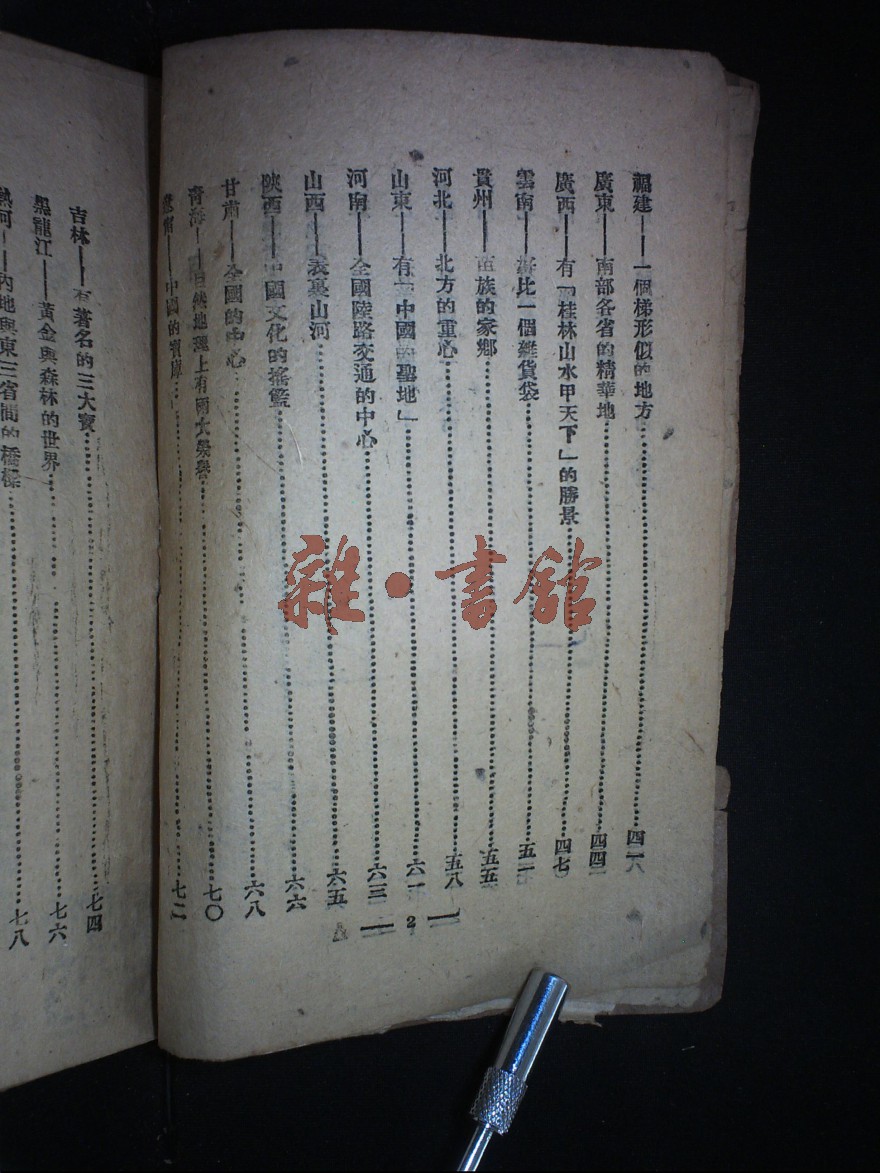 福建——一個梯形似的地方……四一
廣東——南部各省的精華地……四四
廣西——有「桂林山水甲天下」的勝景……四七
雲南——好比一個雜貨袋……五一
貴州——苗族的家鄉……五五
河北——北方的重心……五八
山東——有「中國的聖地」……六一
河南——全國陸路交通的中心……六三
山西——表裏山河……六五
陝西——中國文化的搖籃……六六
甘肅——全國的中心……六八
青海——自然地理上有兩大榮譽……七〇
——中國的寶庫……七二
— 2 —
吉林——有著名的三大寶……七四
黑龍江——黃金與森林的世界……七六
熱河——內地與東三省間的橋樑……七八
雜·書館